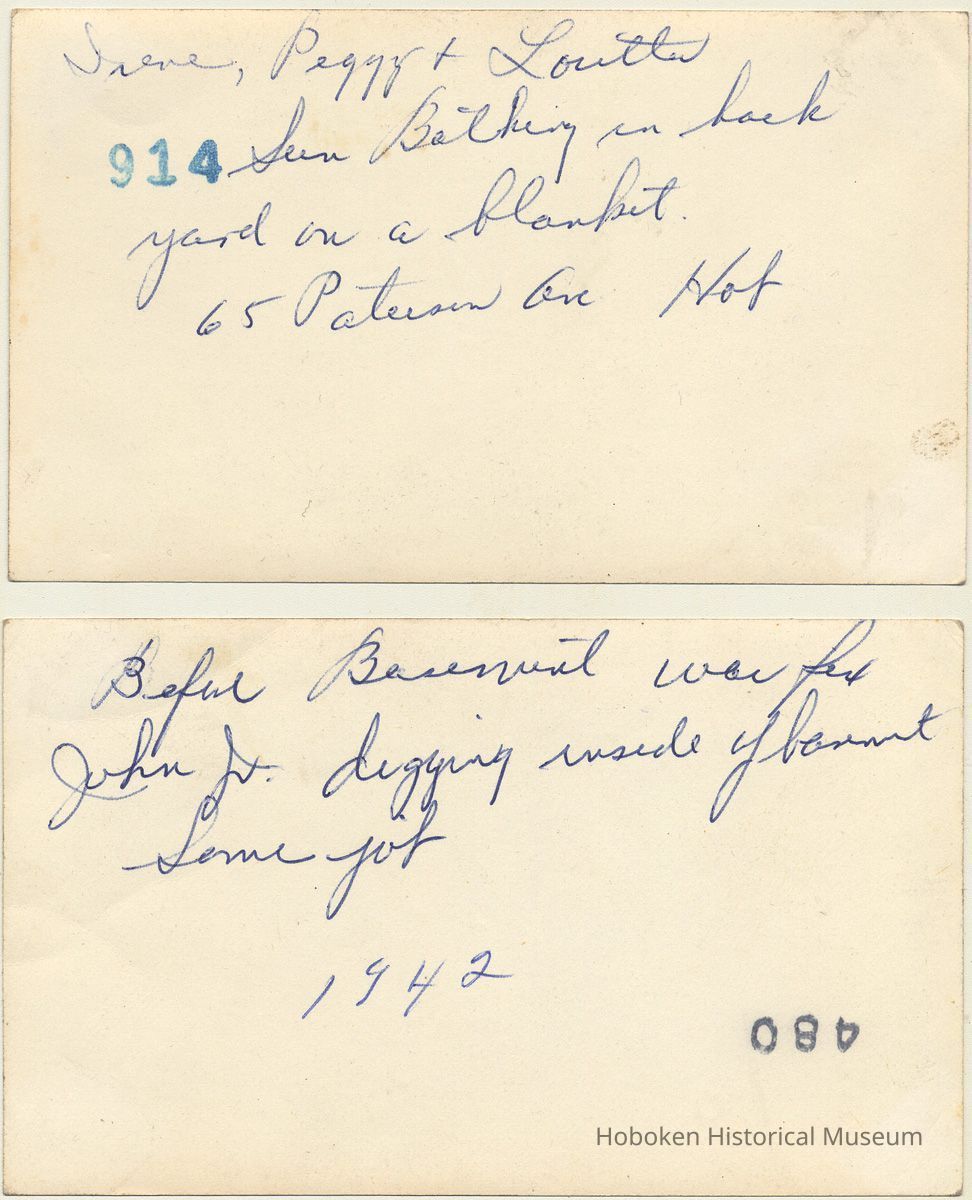 Irene, Peggy + Loretta
914 Sun Bathing in back
yard on a blanket.
65 Paterson Ave Hob
Before Basement was fix
John Jr. digging inside of basmnt
Some job
1942
480
Hoboken Historical Museum